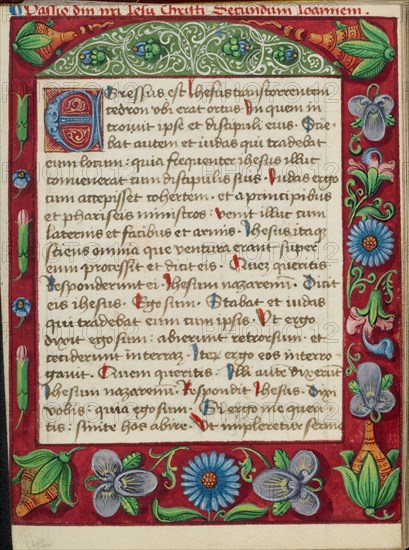 Passio dni nri Iesu Christi Secundum Ioannem.
Egressus est Ihesus trans torrentem
cedron ubi erat ortus In quem in
troivit ipse et discipuli eius Scie
bat autem et iudas qui tradebat
eum locum: quia frequenter ihesus illuc
convenerat cum discipulis suis Iudas ergo
cum accepisset cohortem et a principibus
et phariseis ministros venit illuc cum
laternis et facibus et armis Ihesus itaq
sciens omnia que ventura erant super
eum processit et dicit eis Quez queritis
Responderunt ei Ihesum nazarenu Dicit
eis ihesus Ego sum Stabat et iudas
qui tradebat eum cum ipsis Ut ergo
dixit ego sum: abierunt retrorsum et
ceciderunt in terraz Iter ergo eos interro
gavit Quem queritis Illi aute dixerut
Ihesum nazarenu Respondit Ihesus Dixi
vobis quia ego sum Si ergo me queri
tis: sinite hos abire Ut impleretur sermo